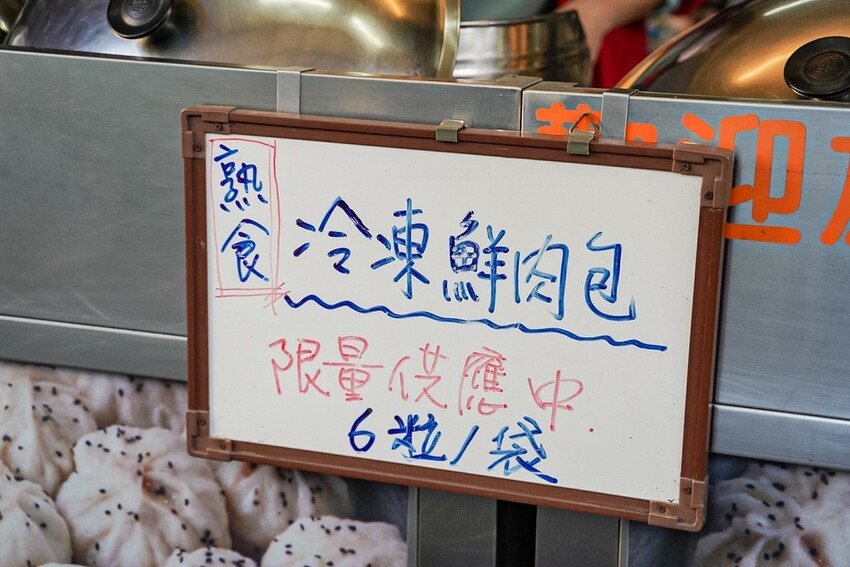 熟食
冷凍鮮肉包
限量供應中.
6粒/袋
歡迎